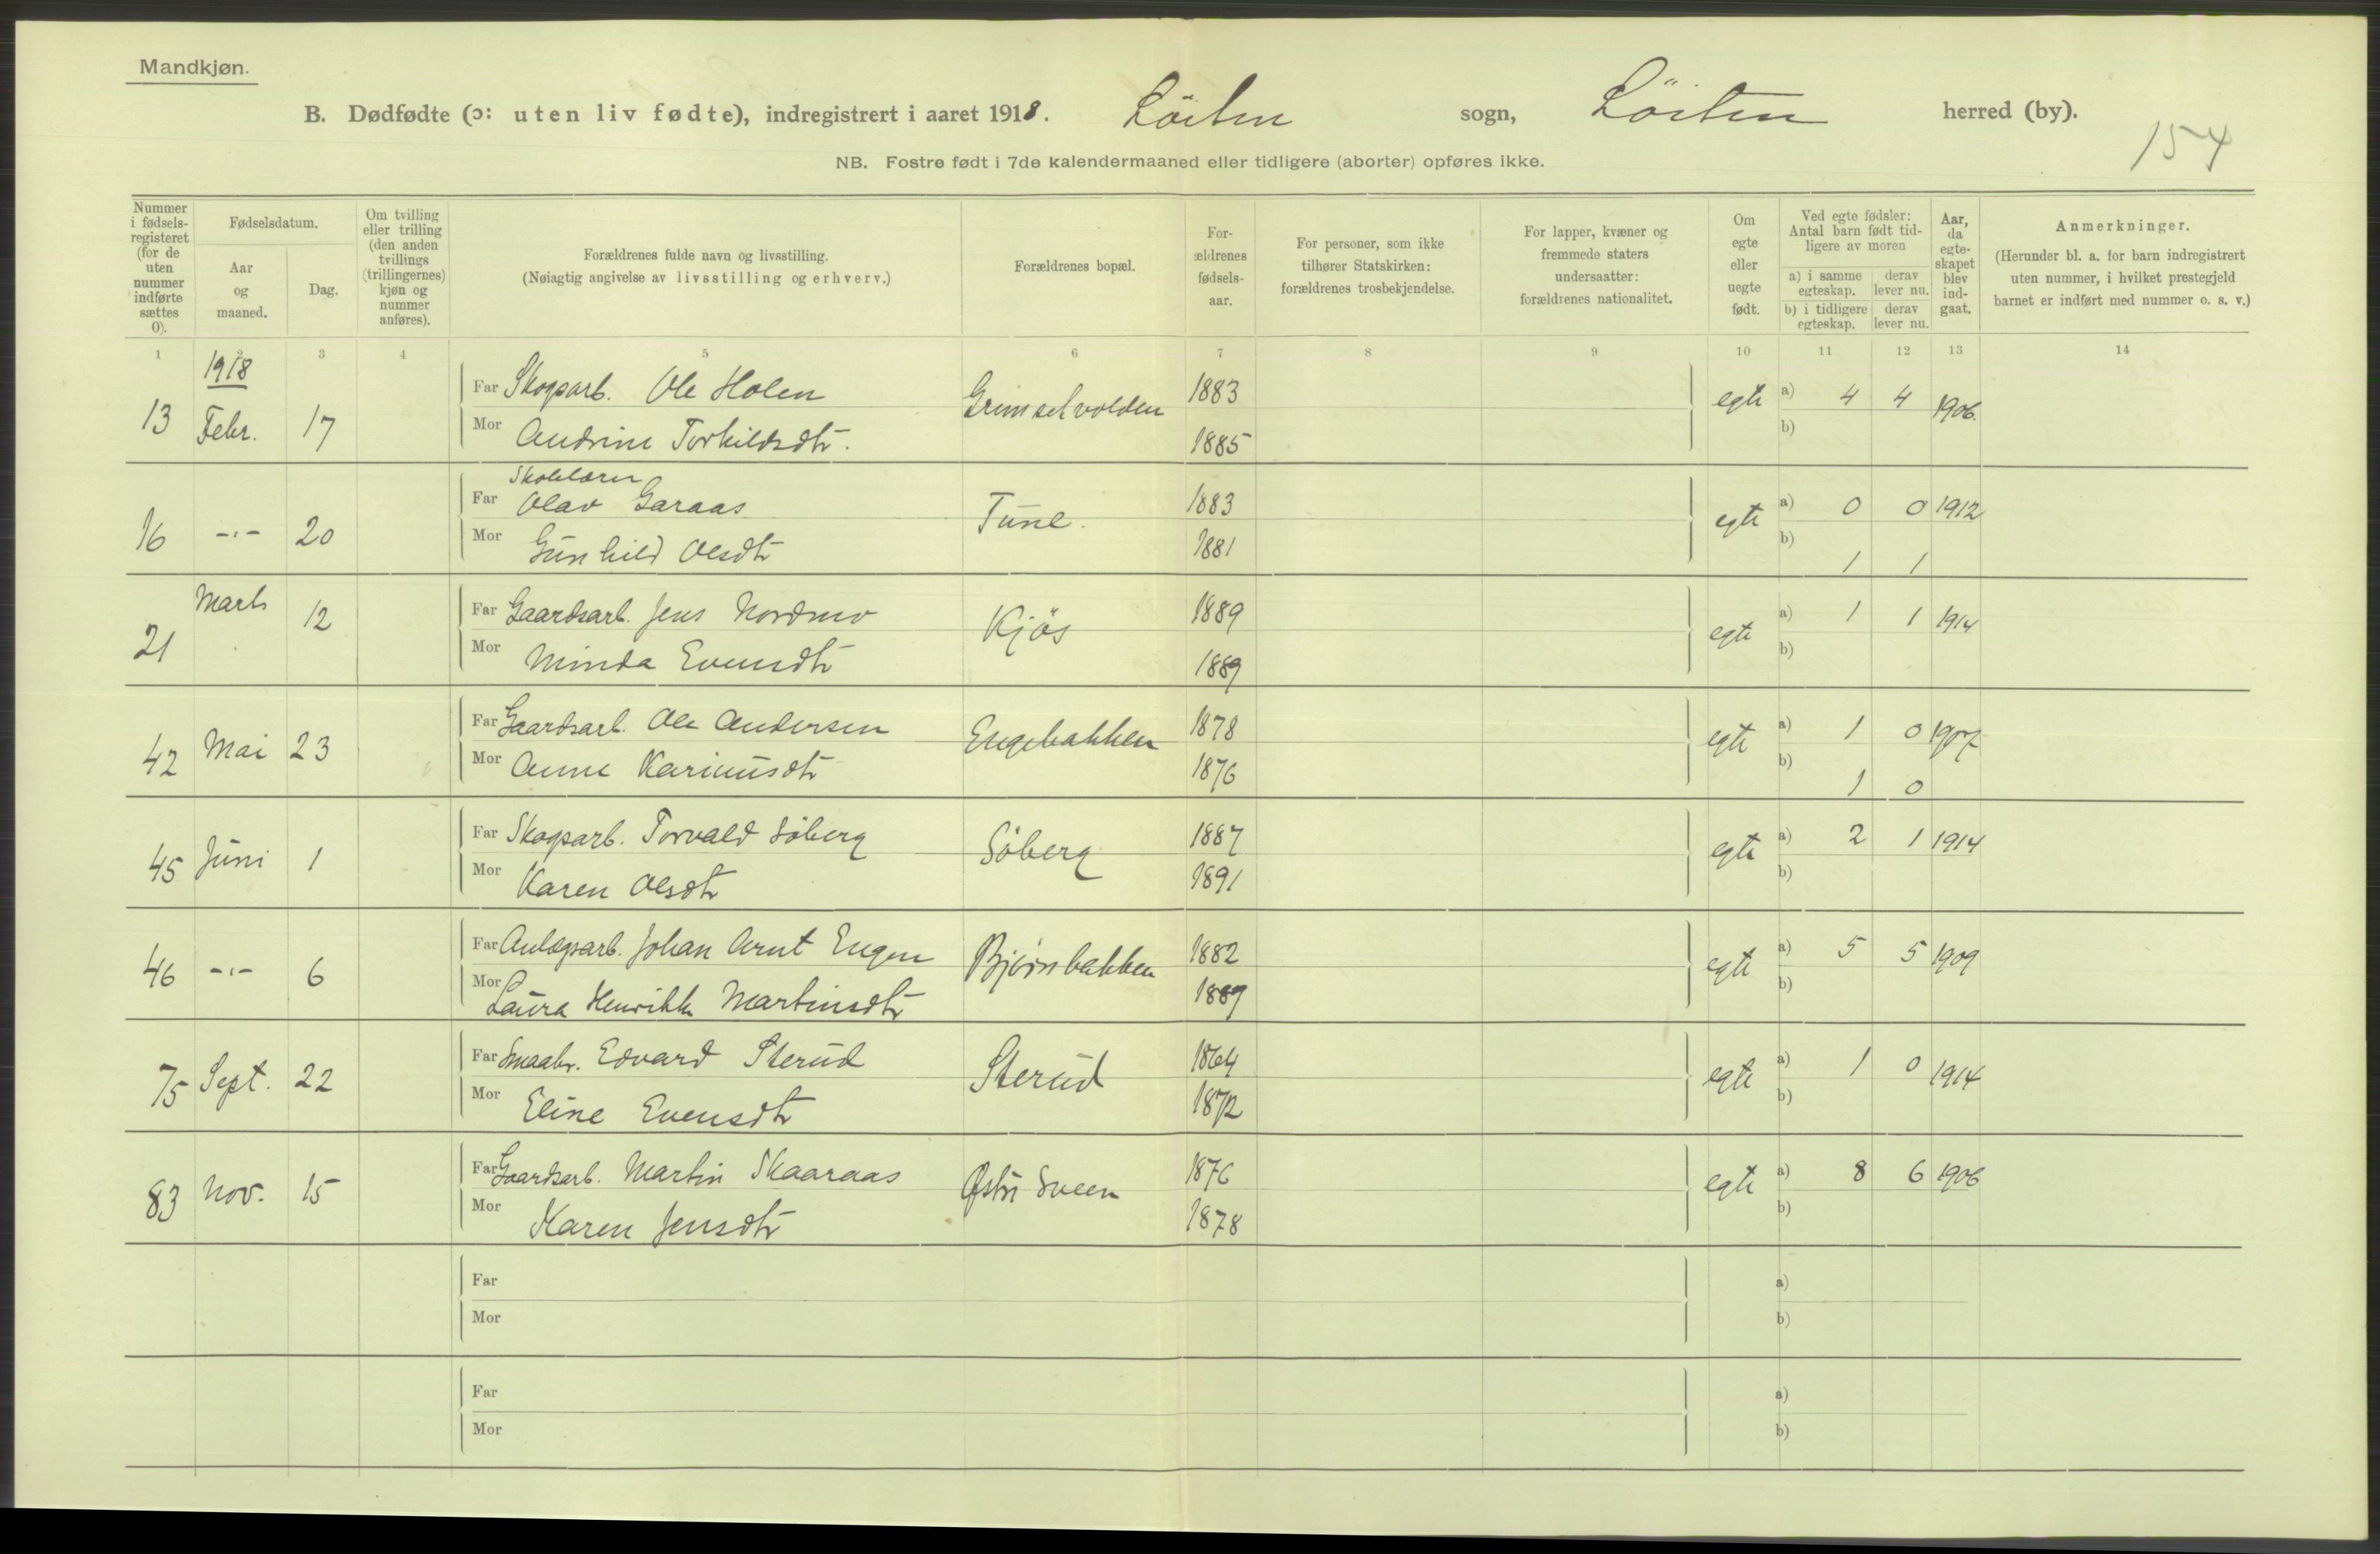 Mandkjøn.
B. Dødfødte (ɔ: uten liv fødte), indregistrert i aaret 1918. Löiten sogn, Löiten herred (by).
154
NB. Fostre født i 7de kalendermaaned eller tidligere (aborter) opføres ikke.
Nummer i fødselsregisteret (for de uten nummer indførte sættes 0).
Fødselsdatum.
Aar og maaned.
Dag.
Om tvilling eller trilling (den anden tvillings (trillingernes) kjøn og nummer anføres).
Forældrenes fulde navn og livsstilling.
(Nøiagtig angivelse av livsstilling og erhverv.)
Forældrenes bopæl.
Forældrenes fødselsaar.
For personer, som ikke tilhører Statskirken: forældrenes trosbekjendelse.
For lapper, kvæner og fremmede staters undersaatter: forældrenes nationalitet.
Om egte eller uegte født.
Ved egte fødsler: Antal barn født tidligere av moren
a) i samme egteskap. derav lever nu.
b) i tidligere egteskap. derav lever nu.
Aar, da egteskapet blev indgaat.
Anmerkninger.
(Herunder bl. a. for barn indregistrert uten nummer, i hvilket prestegjeld barnet er indført med nummer o. s. v.)
1 2 3 4 5 6 7 8 9 10 11 12 13 14
1918
13 Febr. 17 Far Skogsarb. Ole Holen Grimselvolden 1883 egte a) 4 4 1906.
Mor Andrine Torkildsdtr. 1885 b)
Skolelærer
16 -"- 20 Far Olav Garaas Tune. 1883 egte a) 0 0 1912
Mor Gunhild Olsdtr 1881 b) 1 1
21 Marts 12 Far Gaardsarb. Jens Nordmo Kjös 1889 egte a) 1 1 1914
Mor Minda Evensdtr 1889 b)
42 Mai 23 Far Gaardsarb. Ole Andersen Engebakken 1878 egte a) 1 0 1907
Mor Anne Karinusdtr 1876 b) 1 0
45 Juni 1 Far Skogsarb. Torvald Söberg Söberg 1887 egte a) 2 1 1914
Mor Karen Olsdtr 1891 b)
46 -"- 6 Far Anlægsarb. Johan Arnt Engen Bjørnbakken 1882 egte a) 5 5 1909
Mor Laura Henrikke Martinsdtr 1889 b)
75 Sept. 22 Far Smaabr. Edvard Sterud Sterud 1864 egte a) 1 0 1914
Mor Eline Evensdtr 1872 b)
83 Nov. 15 Far Gaardsarb. Martin Skaaraas Østre Sveen 1876 egte a) 8 6 1906
Mor Karen Jensdtr 1878 b)
Far a)
Mor b)
Far a)
Mor b)